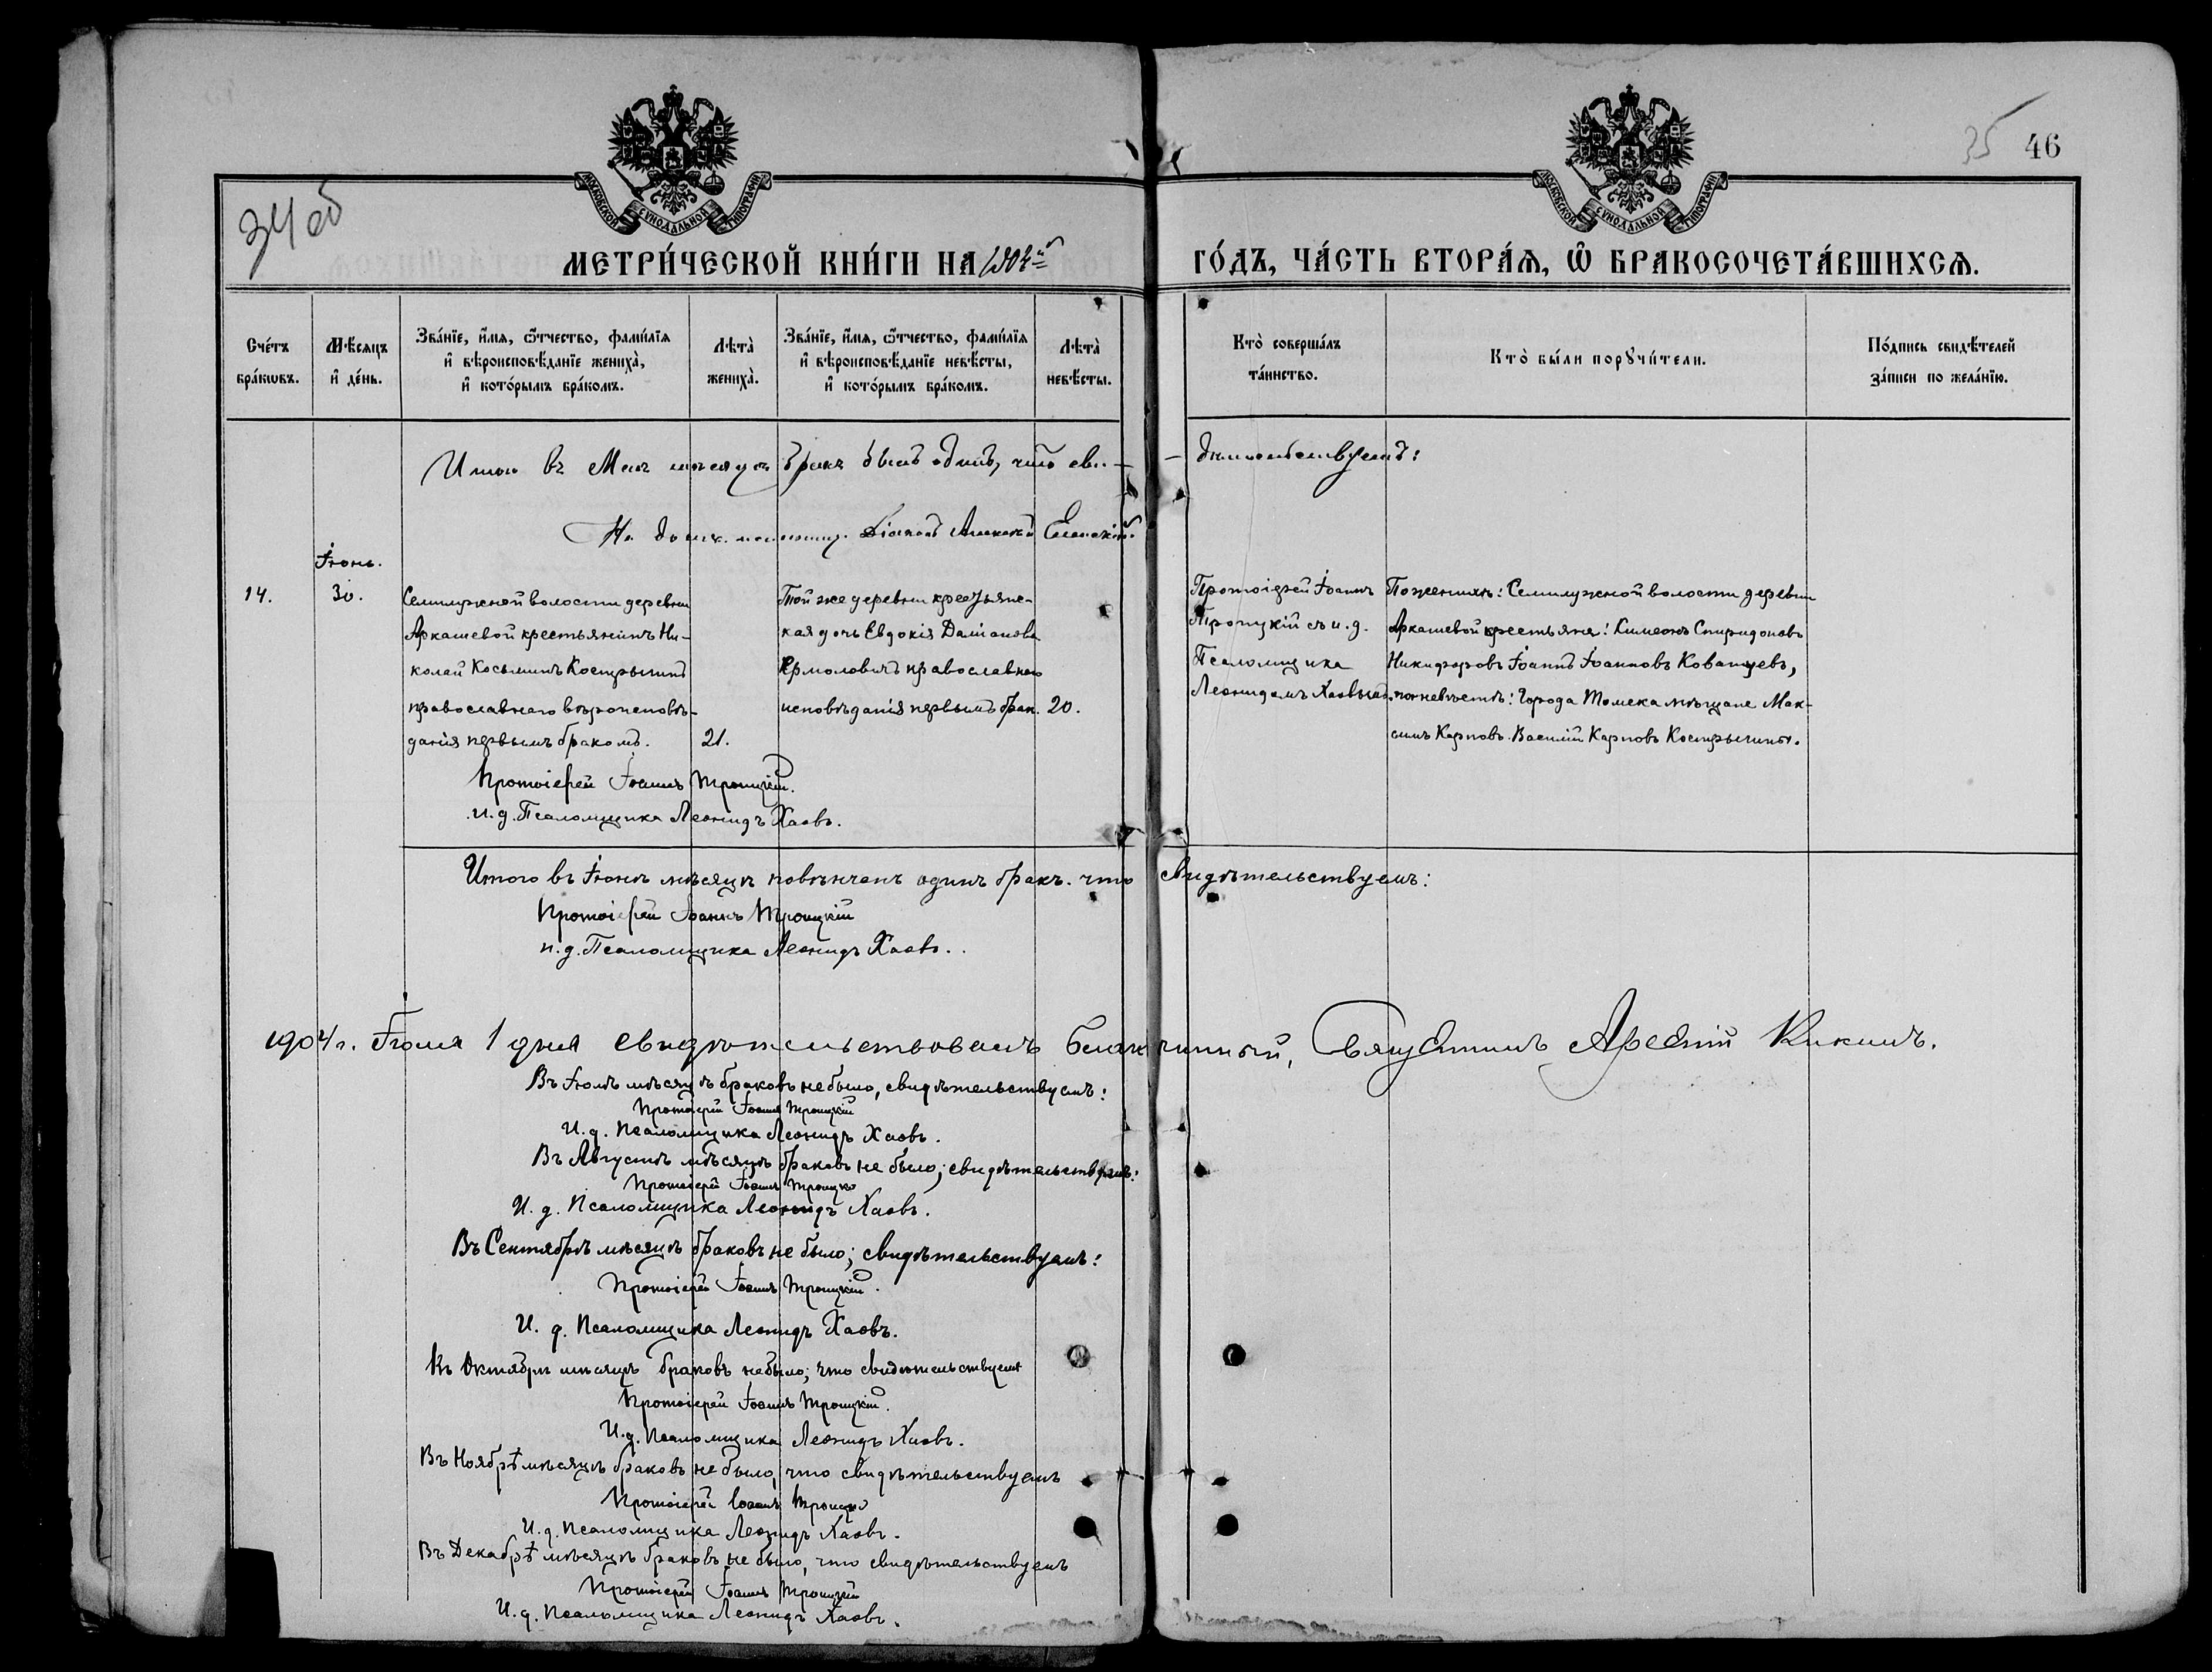 35 46
34 об
МОСКОВСКОЙ СѴНОДАЛЬНОЙ ТИПОГРАФІИ
МОСКОВСКОЙ СѴНОДАЛЬНОЙ ТИПОГРАФІИ
МЕТРИ́ЧЕСКОЙ КНИ́ГИ НА 1904й ГО́ДЪ, ЧА́СТЬ ВТОРА́Ѧ, Ѽ БРАКОСОЧЕТА́ВШИХСѦ.
Сче́тъ бра́кѡвъ.
Мѣ́сяцъ и҆ де́нь.
Зва́нїе, и҆́мѧ, ѻ҆́тчество, фами́лїѧ
и҆ вѣроисповѣ́данїе жениха̀,
и҆ кото́рымъ бра́комъ.
Лѣта̀ жениха̀.
Зва́нїе, и҆́мѧ, ѻ҆́тчество, фами́лїѧ
и҆ вѣроисповѣ́данїе невѣ́сты,
и҆ кото́рымъ бра́комъ.
Лѣта̀ невѣ́сты.
Кто̀ соверша́лъ та́инство.
Кто̀ бы́ли порꙋчи́тели.
По́дпись свидѣ́телей за́писи по жела́нїю.
Итого въ Маѣ мѣсяцѣ бракъ былъ одинъ, что сви-дѣтельствуемъ:
Іюнь.
14.
30.
Семилужной волости деревни
Аркашевой крестьянинъ Ни-
колай Косьминъ Кострыкинъ
православнаго вѣроисповѣ-
данія первымъ бракомъ.
21.
Той же деревни крестьянс-
кая дочь Евдокія Даміанова
Ермоловичъ православнаго
исповѣданія первымъ брак.
20.
Протоіерей Іоаннъ
Троицкій съ и.д.
Псаломщика
Леонидомъ Хаовымъ.
По женихѣ: Семилужной волости деревни
Аркашевой крестьяне: Симеонъ Спиридоновъ
Никифоровъ Іоаннъ Іоанновъ
по невѣстѣ: Города Томска мѣщане Мак-
симъ Карповъ Василій Карповъ
Протоіерей Іоаннъ Троицкій.
и.д. Псаломщика Леонидъ Хаовъ.
Итого въ Іюнѣ мѣсяцѣ повѣнчанъ одинъ бракъ. что свидѣтельствуемъ:
Протоіерей Іоаннъ Троицкій
и.д. Псаломщика Леонидъ Хаовъ.
1904 г. Іюля 1 дня свидѣтельствовалъ Благочинный, Священникъ Арсеній Кикинъ.
Въ Іюлѣ мѣсяцѣ браковъ не было, свидѣтельствуемъ:
Протоіерей Іоаннъ Троицкій
И.д. Псаломщика Леонидъ Хаовъ.
Въ Августѣ мѣсяцѣ браковъ не было; свидѣтельствуемъ:
Протоіерей Іоаннъ Троицкій
И.д. Псаломщика Леонидъ Хаовъ.
Въ Сентябрѣ мѣсяцѣ браковъ не было; свидѣтельствуемъ:
Протоіерей Іоаннъ Троицкій.
И.д. Псаломщика Леонидъ Хаовъ.
Въ Октябрѣ мѣсяцѣ браковъ не было; что свидѣтельствуемъ
Протоіерей Іоаннъ Троицкій.
И.д. Псаломщика Леонидъ Хаовъ.
Въ Ноябрѣ мѣсяцѣ браковъ не было, что свидѣтельствуемъ
Протоіерей Іоаннъ Троицкій
И.д. Псаломщика Леонидъ Хаовъ.
Въ Декабрѣ мѣсяцѣ браковъ не было, что свидѣтельствуемъ
Протоіерей Іоаннъ Троицкій
И.д. Псаломщика Леонидъ Хаовъ.